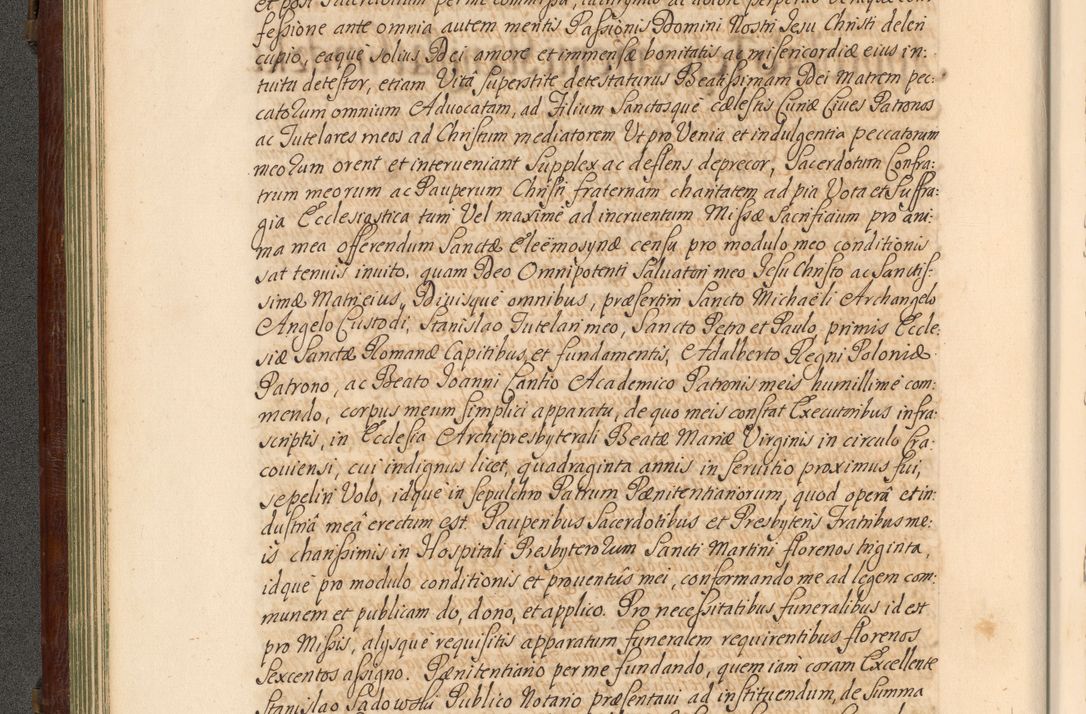 et post Sacerdotium per me commissa, lachrymas ac dolore perpetuo
feſsione ante omnia autem mentis Paſsionis Domini Nostri Jesu Christi deleri
cupio, eaque solius Dei amore et immensæ bonitatis ac misericordiæ eius in:
tuitu detestor, etiam Vitâ superstite detestaturus Beatiſsimam Dei Matrem pec:
catorum omnium Advocatam, ad Filium Sanctosque cælestis Curiæ Cives Patronos
ac Tutelares meos ad Christum mediatorem Ut pro Venia et indulgentia peccatorum
meorum orent et interveniant Supplex ac deflens deprecor, Sacerdotum Confra:
trum meorum ac Pauperum Christi fraternam charitatem ad pia Vota et Suffra:
gia Ecclesiastica tum Vel maximè ad incruentum Miſsæ Sacrificium pro ani:
ma mea offerendum Sanctæ Eleëmosynæ censu pro modulo meo conditionis
sat tenuis invito, quam Deo Omnipotenti Salvatori meo Jesu Christo ac Sanctiſ:
simæ Matri eius, Divisque omnibus, præsertim Sancto Michaëli Archangelo
Angelo Custodi, Stanislao Tutelari meo, Sancto Petro et Paulo, primis Eccle:
siæ Sanctæ Romanæ Capitibus et fundamentis, Adalberto Regni Poloniæ
Patrono, ac Beato Joanni Cantio Academico Patronis meis humillimè com:
mendo, corpus meum simplici apparatu, de quo meis constat Executoribus infra:
scriptis, in Ecclesia Archipresbyterali Beatæ Mariæ Virginis in circulo Cra:
coviensi, cui indignus licet, quadraginta annis in servitio proximus fui,
sepeliri Volo, idque in sepulchro Patrum Pænitentiariorum, quod operâ et in:
dustriâ meâ erectum est. Pauperibus Sacerdotibus et Presbyteris Fratribus me:
is chariſsimis in Hospitali Presbyterorum Sancti Martini florenos triginta,
idque pro modulo conditionis et proventûs mei, conformando me ad legem com:
munem et publicam do, dono, et applico. Pro neceſsitatibus funeralibus id est
pro Miſsis, alysque requisitis apparatum funeralem requirentibus florenos
Sexcentos aſsigno. Pænitentiario per me fundando, quem iam coram Excellente
Stanislao Sadowski Publico Notario præsentavi ad instituendum, de Summa